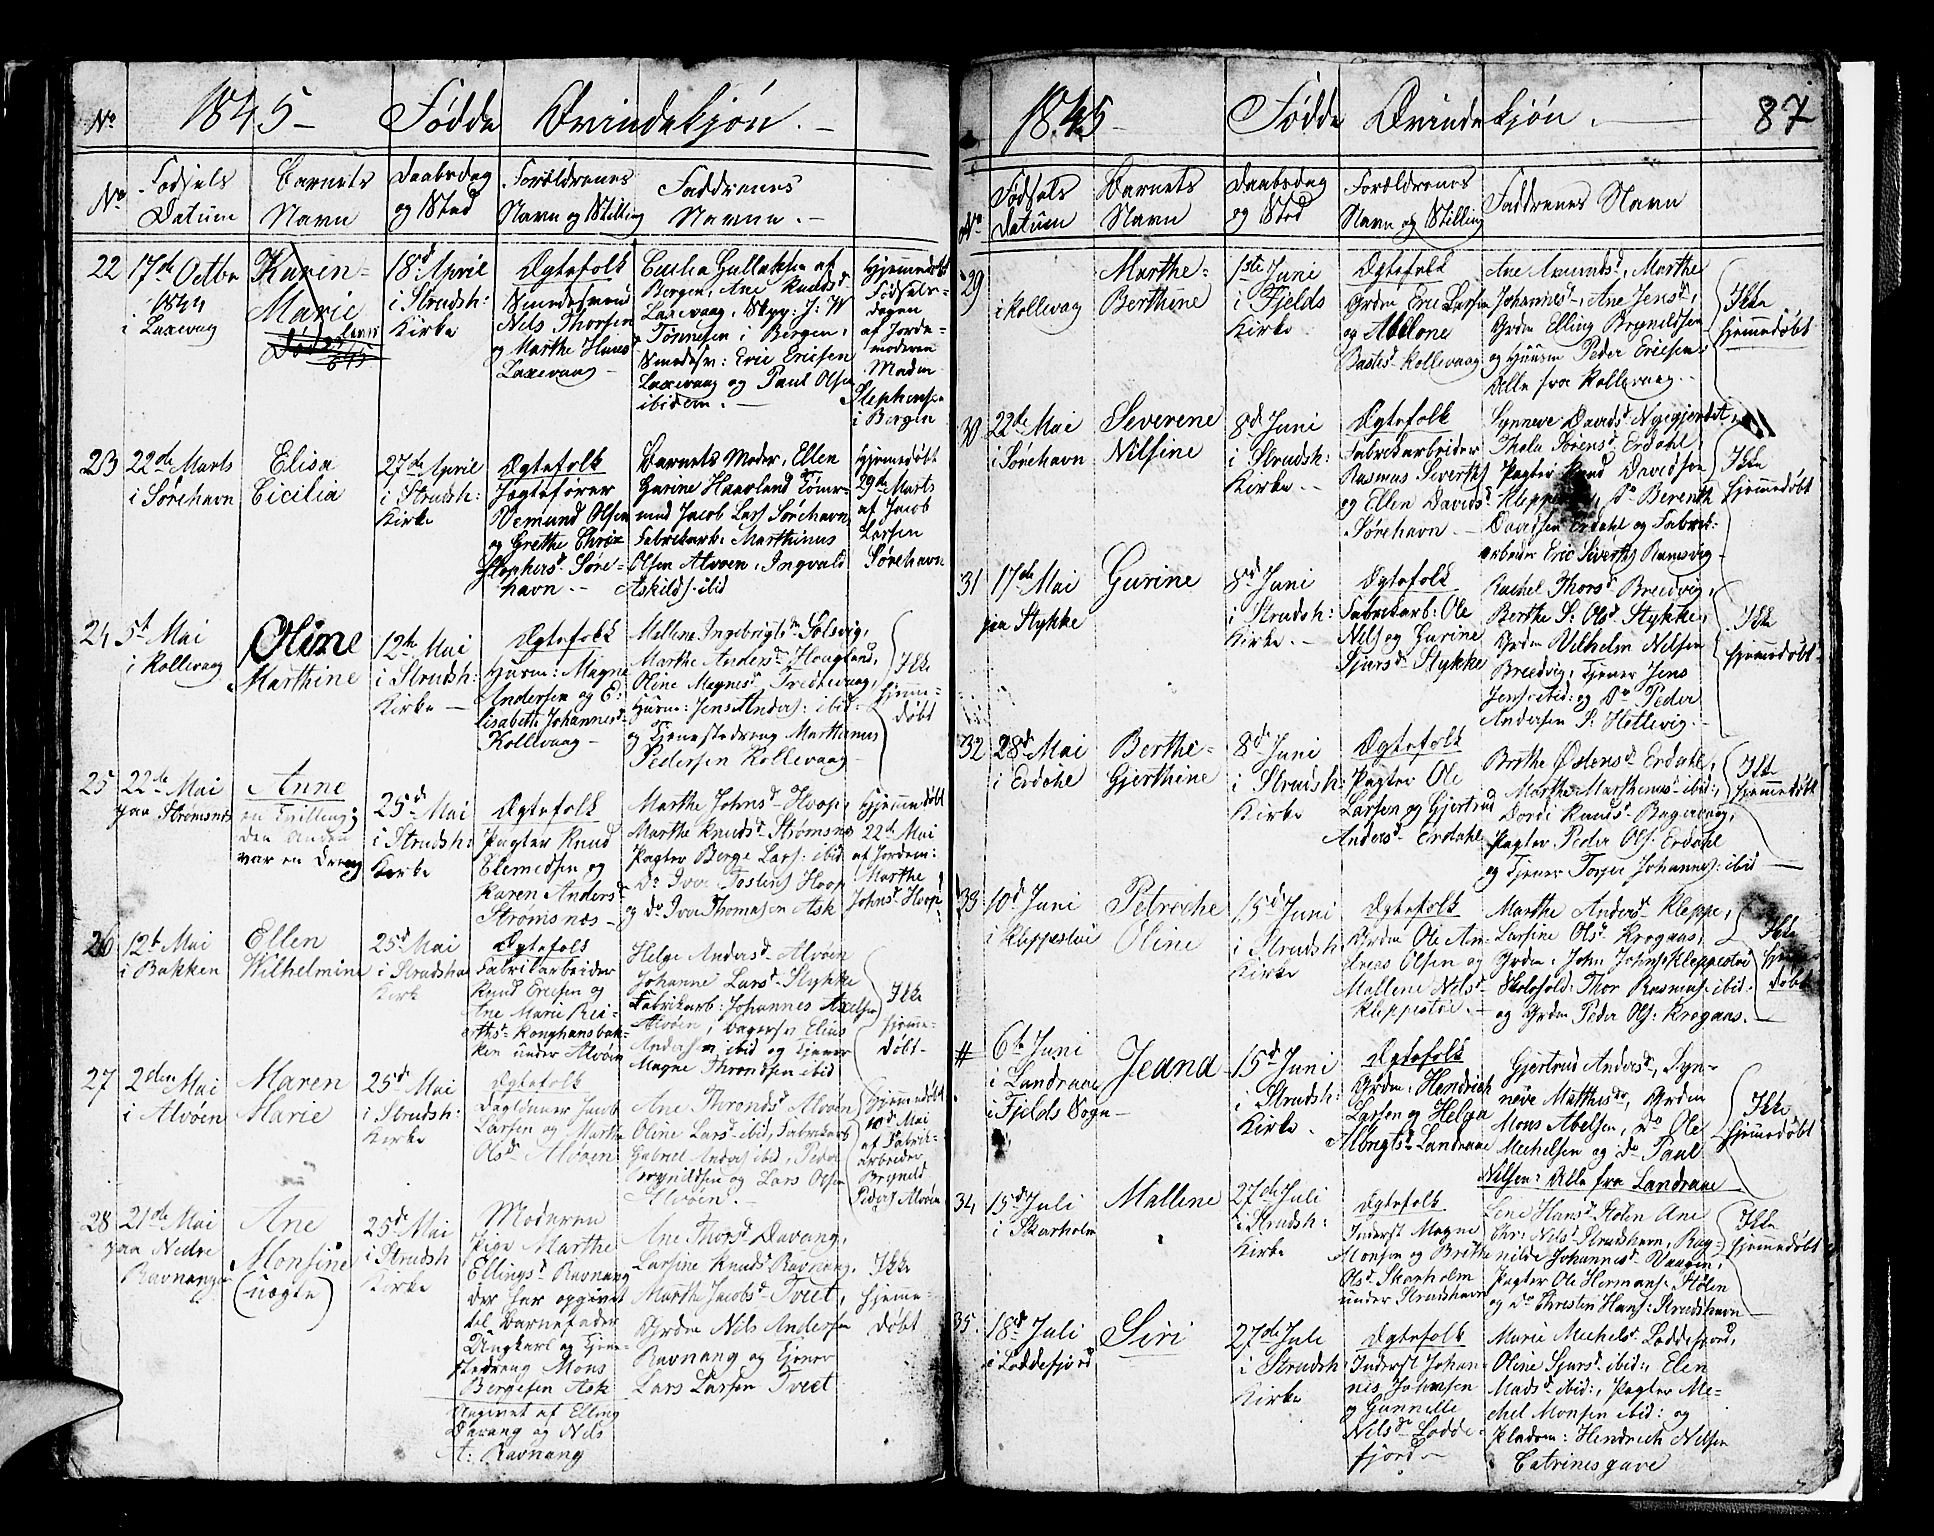 No 1845 - Fødde Qvindekjøn. -
No Fødsels Datum
Barnets Navn
Daabsdag og Sted
Forældrenes Navn og Stilling
Faddrenes Navne. -
22 17de Octbr 1844 i Laxevaag
Karin Marie
18d April i Strudsh: Kirke
Ægtefolk
Smedesvend
Nils Thorsen
og Marthe Hansd
Laxevaag -
Cicilia Gullaksen af
Bergen, Ane Knudsd
Laxevaag, Skpp: J: W
Tønnesen i Bergen,
Smedesv: Eric Ericsen
Laxevaag og Paul Olsen
ibidem. -
Hjemmedøbt
Fødsels-
dagen
af Jorde-
moderen
Madm
Stephensen
i Bergen
23 22de Marts i Sørehavn
Elisa Cicilia
27de April i Strudsh: Kirke
Ægtefolk
Jægtefører
Vemund Olsen
og Grethe Chris-
stophersd Søre-
havn. -
Barnets Moder, Ellen
Gurine Haavland Tømr-
mnd Jacob Lars Sørehavn,
Fabrikarb: Marthinus
Olsen Alvøen, Ingvald
Askilds: ibid
Hjemedøbt
29de Marts
af Jacob
Larsen
Sørehavn
24 5t Mai i Kollevaag
Oline Marthine
12te Mai i Strudsh: Kirke -
Ægtefolk
Huusm: Magne
Andersen og E-
lisabeth Johannesd
Kollevaag -
Mallene Ingebrigtsdr Solsvig,
Marthe Andersd Hougland,
Oline Magnesd Tredtevaag,
Huusm: Jens Anders: ibid:
og Tjenestedreng Marthinus
Pedersen Kollevaag -
Ikke
hjemme-
døbt
25 22de Mai paa Strømsnes
Anne
en Tvilling;
den Anden
var en Dreng
25d Mai i Strudsh: Kirke
Ægtefolk
Pagter Knud
Clemedsen og
Karen Andersd
Strømsnæs -
Marthe Johnsd Hoop,
Marthe Knudsd Strømsnes
Pagter Berge Lars: ibid
Do Iver Tostens Hoop
og do Iver Thomasen Ask
Hjemmedøbt
22de Mai
af Jordem:
Marthe
Johnsd Hoop
26 12te Mai i Bakken
Ellen Wilhelmine
25d Mai i Strudsha Kirk
Ægtefolk
Fabrikarbeider
Knud Ericsen og
Ane Marie
Konghansbak-
ken under Alvøen
Helge Andersd Alvøen
Johanne Larsd Stykke
Fabrikarb: Johannes Axelsen
Alvøen, Bagersv Elias
Andersen ibid og Tjener
Magne Throndsen ibid
Ikke
hjemme-
døbt -
27 2den Mai i Alvøen
Maren Marie
25d Mai i Strudsh: Kirke
Ægtefolk
Dagldnner Jacob
Larsen og Marthe
Olsd Alvøen
Ane Throndsd Alvøen
Oline Larsd ibid, Fabrikarb
Gabriel Anders ibid, Peder
Brynildsen og Lars Olsen
Alvøen. -
Hjemmedøbt
10d Mai
af Fabrik-
arbeider
Brynild
Peders: Alvøen
28 21de Mai paa Nedre Ravnanger
Ane Monsine
(uægte)
25de Mai i Strudsh Kirke
Moderen
Pige Marthe
Ellingsd Ravnang
der har opgivet
til Barnefader
Ungkarl og Tjene-
stedreng Mons
Bergesen Ask
Angivet af Elling
Davang og Nils
A: Ravnang
Ane Thorsd Davang,
Larsine Knudsd Ravnang,
Marthe Jacobsd Tveit,
Grdm Nils Andersen
Ravnang og Tjener
Lars Larsen Tveit
Ikke
hjeme-
døbt
1845 - Fødde Qvindekjøn. - 87
No Fødsels Datum
Barnets Navn
Daabsdag og Sted
Forældrenes Navn og Stilling
Faddrenes Navn
29 i Kollevaag
Marthe Berthine
1ste Juni i Fjelds Kirke
Ægtefolk
Grdm Eric Larsen
og Abelone
Bastsd Kollevaag
Ane Amundsd, Marthe
Johannesd, Ane Jensd,
Grdm Elling Brynildsen
og Huusm Peder Ericsen
Alle fra Kollevaag. -
Ikke
hjemedøbt
30 22de Mai i Sørehavn
Severene Nilsine
8d Juni i Strudsh: Kirke. -
Ægtefolk
Fabrikarbeider
Rasmus Siverts
og Ellen Davidsd
Sørehavn -
Synneve Davidsd Nygjerdet,
Thala Sørensd Erdahl,
Pagter Knud Davidsen
Kleppe, Do Berenth
Davidsen Erdahl og Fabrik-
arbeder Eric Siverts Ramsvig -
Ikke
hjemmedøbt
31 17de Mai paa Stykke
Gurine
8d Juni i Strudsh: Kirke. -
Ægtefolk
Fabrikarb: Ole
Nils og Gurine
Sjursd Stykke
Rachel Thorsd Bredvig,
Berthe S: Olsd Stykke,
Grdm Vilhelm Nilsen
Bredvig, Tjener Jens
Jens: ibid: og Do Peder
Andersen S: Hetlevig. -
Ikke
hjemmedøbt
32 28d Mai i Erdahl
Berthe Gjerthine
8de Juni i Strudsh: Kirke
Ægtefolk
Pagter Ole
Larsen og Gjertrud
Andersd Erdahl
Brithe Østensd Erdahl,
Marthe Marthinusd ibid:,
Dordi Knudsd Bagervaag,
Pagter Peder Ols: Erdahl
og Tjener Torger Johannes: ibid -
Ikke
hjemmedøbt
33 10d Juni i Kleppestøi
Petreche Oline
15d Juni i Strudsh Kirke
Ægtefolk
Grdm Ole An-
dreas Olsen og
Mallene Nilsd
Kleppestøi. -
Marthe Andersd Kleppe,
Larsine Olsd Krogaas,
Grdm: John Johns: Kleppestøi
Skolehold: Thor Rasmus: ibid:
og Grdm Peder Ols: Krogaas. -
Ikke
hjemme
døbt
# 6te Juni i Landraae i Fjelds Sogn -
Jeand
15d Juni i Strudsh: Kirke. -
Ægtefolk
Grdm: Hendrich
Larsen og Helga
Albrigtsd Landraae
Gjertrud Andersd, Syn-
neve Matthisdr, Grdm
Mons Abelsen, Do Ole
Mechelsen og do Paul
Nilsen: Alle fra Landraae -
Ikke
hjemmedøbt
34 15d Juli i Skarholm
Mallene
27de Juli i Strudsh: Kirke
Ægtefolk
Inderst Magne
Monsen og Brithe
Olsd Skarholm
under Strudshavn
Lene Hansd Holen Ane
Chr: Nilsd Strudshavn, Rag-
nilde Johannesd Vaagen,
Pagter Ole Hermans: Holen
og do Christen Hans: Strudshavn
Ikke
hjemmedøbt
35. 18d Juli i Loddefjord
Siri
27de Juli i Strudsh Kirke
Ægtefolk
Inderst Johan-
nes Johnsen
og Gunnille
Nilsdr Lodde-
fjord -
Marie Mechelsd Loddefjord,
Oline Sjursd ibid:, Elen
Madsd ibid:, Pagter Me-
chel Monsen ibid: og
Pladsm: Hendrich Nilsen
Catrinesgave